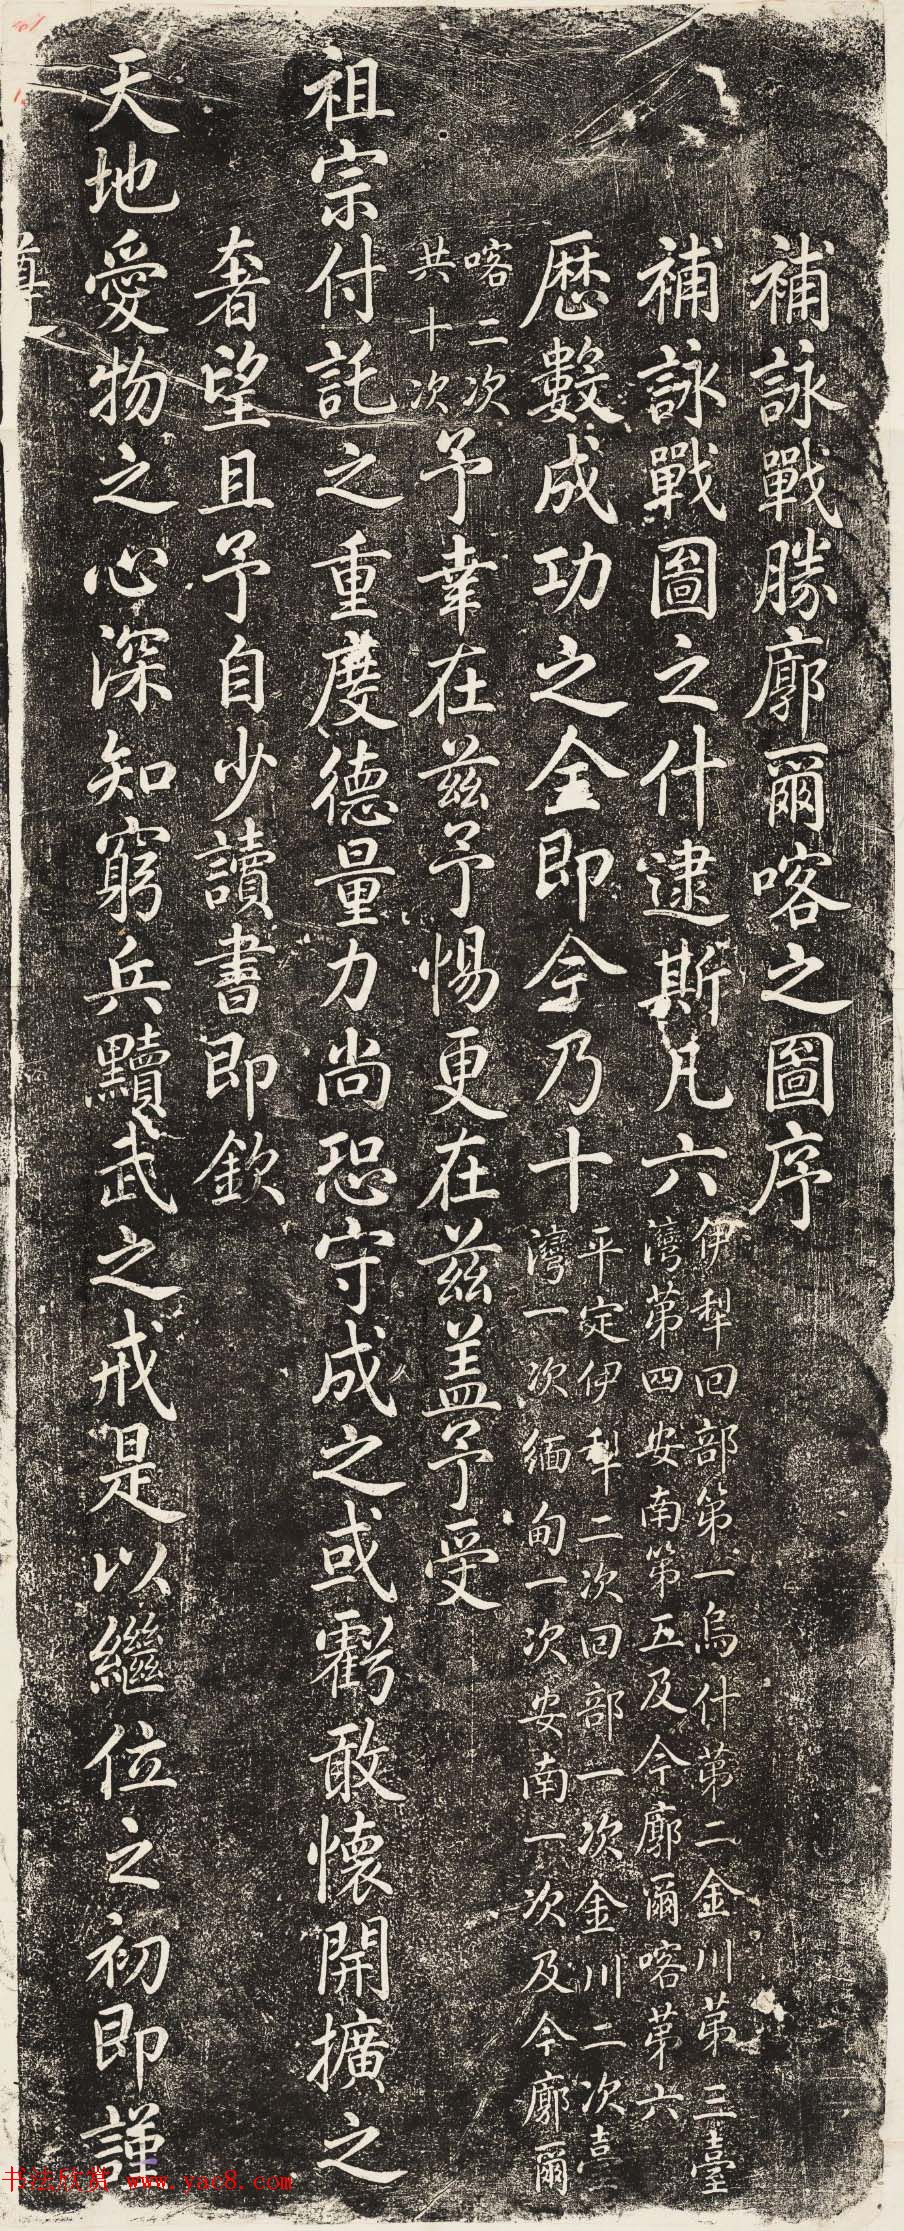 補詠戰勝廓爾喀之圖序
補詠戰圖之什逮斯凡六伊犁回部第一烏什第二金川第三臺
灣第四安南第五及今廓爾喀第六
歷數成功之全即今乃十平定伊犁二次回部一次金川二次臺
灣一次緬甸一次安南一次及今廓爾
喀二次
共十次予幸在茲予惕更在茲盖予受
祖宗付託之重度德量力尚恐守成之或虧敢懷開擴之
奢望且予自少讀書即欽
天地愛物之心深知窮兵黷武之戒是以繼位之初即謹
書法欣赏 www.yac8.com